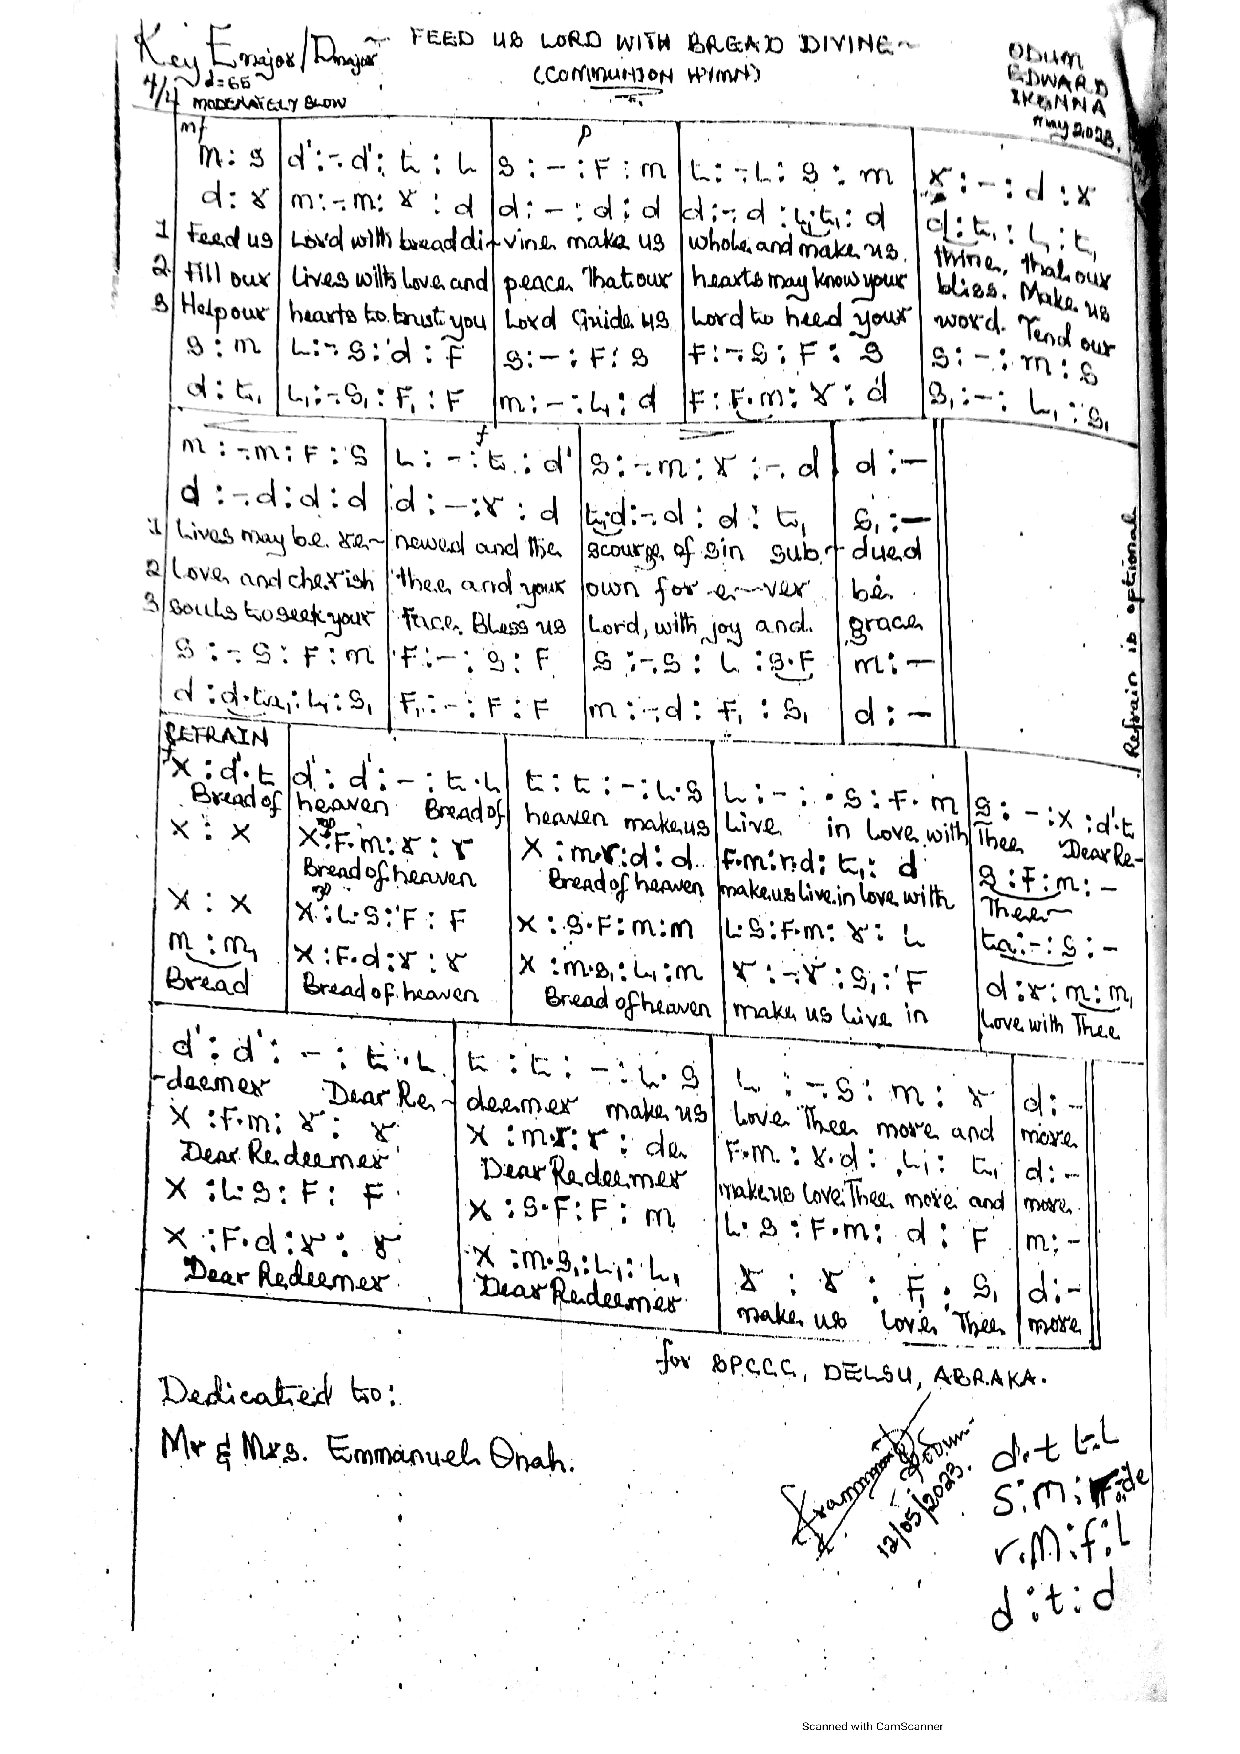 Key E major/D major
FEED US LORD WITH BREAD DIVINE
(COMMUNION HYMN)
ODUM
EDWARD
IKENNA
May 2023.
4/4 d=65
MODERATELY SLOW
mf
p
m : s | d' :-. d' : t : l | s : - : f : m | l :-. l : s : m | r : - : d : r
d : r | m :-. m : r : d | d : - : d : d | d :-. d : l₁. t₁ : d | d : t₁ : l₁ : t₁
1 Feed us | Lord with bread di- | vine make us | whole and make us | thine, that our
2 Fill our | Lives with Love and | peace That our | hearts may know your | bliss. Make us
3 Help our | hearts to trust you | Lord Guide us | Lord to heed your | word. Tend our
s : m | l :-. s : d' : f | s : - : f : s | f :-. s : f : s | s : - : m : s
d : t₁ | l₁ :-. s₁ : f₁ : f | m : - : l₁ : d | f : f. m : r : d | s₁ : - : l₁ : s₁
f
m :-. m : f : s | l : - : t : d' | s :-. m : r :-. d | d : -
d :-. d : d : d | d : - : r : d | t₁. d :-. d : d : t₁ | s₁ : -
1 Lives may be re- | newed and the | scourge of sin sub- | dued
2 Love and cherish | thee and your | own for e-ver | be
3 souls to seek your | face. Bless us | Lord, with joy and | grace
s :-. s : f : m | f : - : s : f | s :-. s : l : s. f | m : -
d : d. ta₁ : l₁ : s₁ | f₁ : - : f : f | m :-. d : f₁ : s₁ | d : -
Refrain is optional
REFRAIN
f
x : d'. t | d' : d' : - : t. l | t : t : - : l. s | l : - : . s : f. m | s : - : x : d'. t
Bread of | heaven Bread of | heaven make us | Live in Love with | Thee Dear Re-
x : x | x : f. m : r : r | x : m. r : d : d | f. m : r. d : t₁ : d | s : f : m : -
Bread of heaven | Bread of heaven | make us live in love with | Thee
x : x | x : l. s : f : f | x : s. f : m : m | l. s : f. m : r : l | ta : - : s : -
m : m₁ | x : f. d : r : r | x : m. s₁ : l₁ : m | r :-. r : s₁ : f | d : r : m : m₁
Bread | Bread of heaven | Bread of heaven | make us live in | Love with Thee
d' : d' : - : t. l | t : t : - : l. s | l :-. s : m : r | d : -
-deemer Dear Re- | deemer make us | Love Thee more and | more
x : f. m : r : r | x : m. r : r : de | f. m : r. d : l₁ : t₁ | d : -
Dear Redeemer | Dear Redeemer | make us love Thee more and | more
x : l. s : f : f | x : s. f : f : m | l. s : f. m : d : f | m : -
x : f. d : r : r | x : m. s₁ : l₁ : l₁ | r : r : f₁ : s₁ | d : -
Dear Redeemer | Dear Redeemer | make us love Thee | more
for SPCCC, DELSU, ABRAKA.
Dedicated to:
Mr & Mrs. Emmanuel Onah.
12/05/2023.
d.t t.l
s:m:
r.m:f:l
d:t:d
Scanned with CamScanner